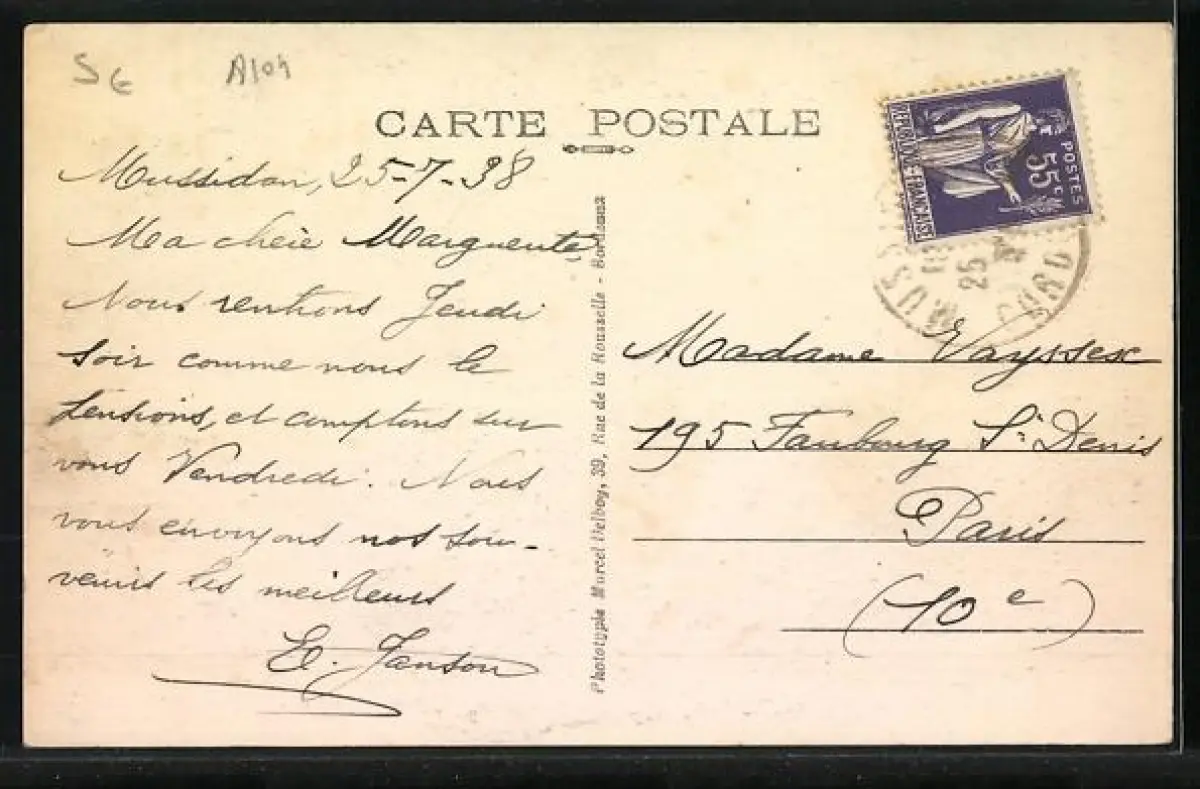 S G A104
CARTE POSTALE
Mussidan, 25-7-38
Ma chère Marguerite
Nous rentrons Jeudi
soir comme nous le
pensions, et comptons sur
vous Vendredi. Nous
vous envoyons nos sou-
venirs les meilleurs
E. Janson
Phototypie Marcel Delboy, 39, Rue de la Rousselle - Bordeaux
POSTES
55c
REPUBLIQUE FRANÇAISE
25
Madame Vayssex
195 Faubourg St Denis
Paris
(10e)